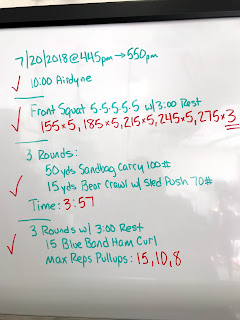 7/20/2018 @ 445pm → 550pm
10:00 Airdyne
Front Squat 5.5.5.5.5 w/ 3:00 Rest
155x5, 185x5, 215x5, 245x5, 275x3
3 Rounds:
50yds Sandbag Carry 100#
15yds Bear Crawl w/ Sled Push 70#
Time: 3:57
3 Rounds w/ 3:00 Rest
15 Blue Band Ham Curl
Max Reps Pullups: 15, 10, 8